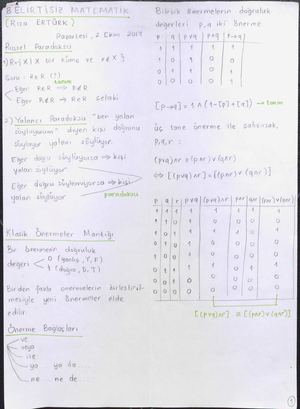 BELİRTİSİZ MATEMATİK
(Rıza ERTÜRK)
Pazartesi, 2 Ekim 2017
Russel Paradoksu
Soru: R∈R (?)
Eğer R∈R ⇒ R∉R
Eğer R∉R ⇒ R∈R çelişki
2.) Yalancı Paradoksu "ben yalan
söylüyorum" diyen kişi doğruyu
söylüyor yalanı söylüyor.
Eğer doğru söylüyorsa ⇒ kişi
yalan söylüyor
Eğer doğru söylemiyorsa ⇒ kişi
yalan söylüyor
paradoksu
Klasik Önermeler Mantığı
Bir önermenin doğruluk
değeri
0 (yanlış, Y, F)
1 (doğru, D, T)
Birden fazla önermelerin birleştiril-
mesiyle yeni önermeler elde
edilir.
Önerme Bağlaçları
ve
veya
ise
ya ya da
ne ne de
Bileşik önermelerin doğruluk
değerleri p,q iki önerme
p q p∨q p∧q p→q
1 1 1 1 1
1 0 1 0 0
0 1 1 0 1
0 0 0 0 1
[p→q] = 1 ∧ (1-[p]+[q]) → tanım
üç tane önerme ile çalışırsak,
p,q,r :
(p∨q)∧r ≡ (p∧r)∨(q∧r)
⇔ [(p∨q)∧r] = [(p∧r)∨(q∧r)]
p q r p∨q (p∨q)∧r p∧r q∧r (p∧r)∨(q∧r)
[(p∨q)∧r] = [(p∧r)∨(q∧r)]
1